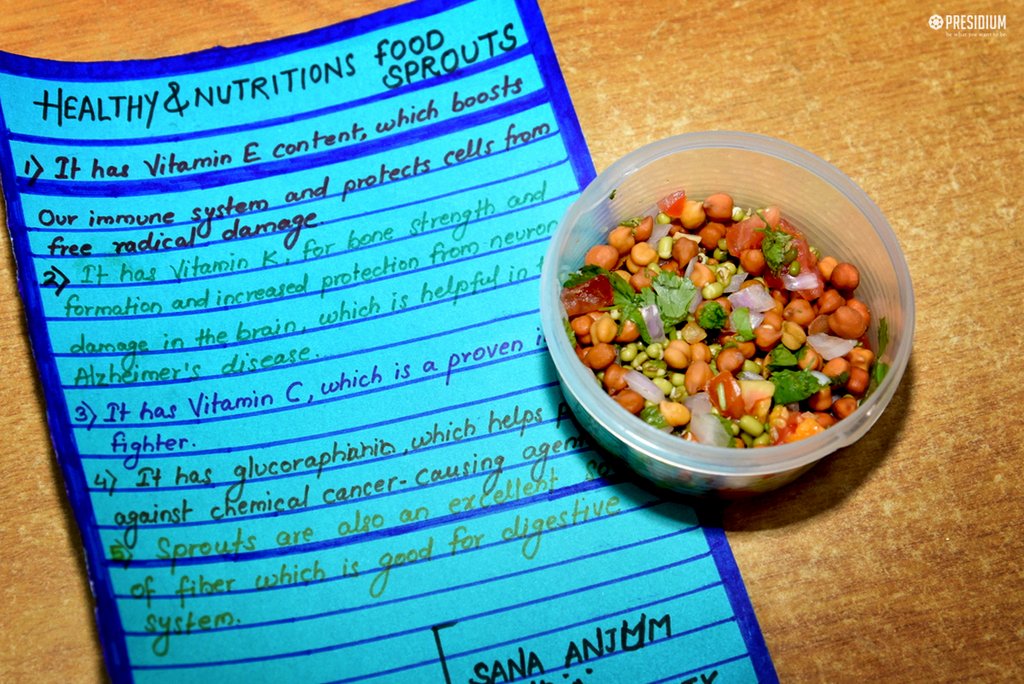 PRESIDIUM
be what you want to be
HEALTHY & NUTRITIONS FOOD
SPROUTS
1) It has Vitamin E content, which boosts
Our immune system and protects cells from
free radical damage.
2) It has Vitamin K, for bone strength and
formation and increased protection from neuron
damage in the brain, which is helpful in
Alzheimer's disease.
3) It has Vitamin C, which is a proven
fighter.
4) It has glucoraphanin, which helps
against chemical cancer-causing
5) Sprouts are also an excellent
of fiber which is good for digestive
system.
SANA ANJMM